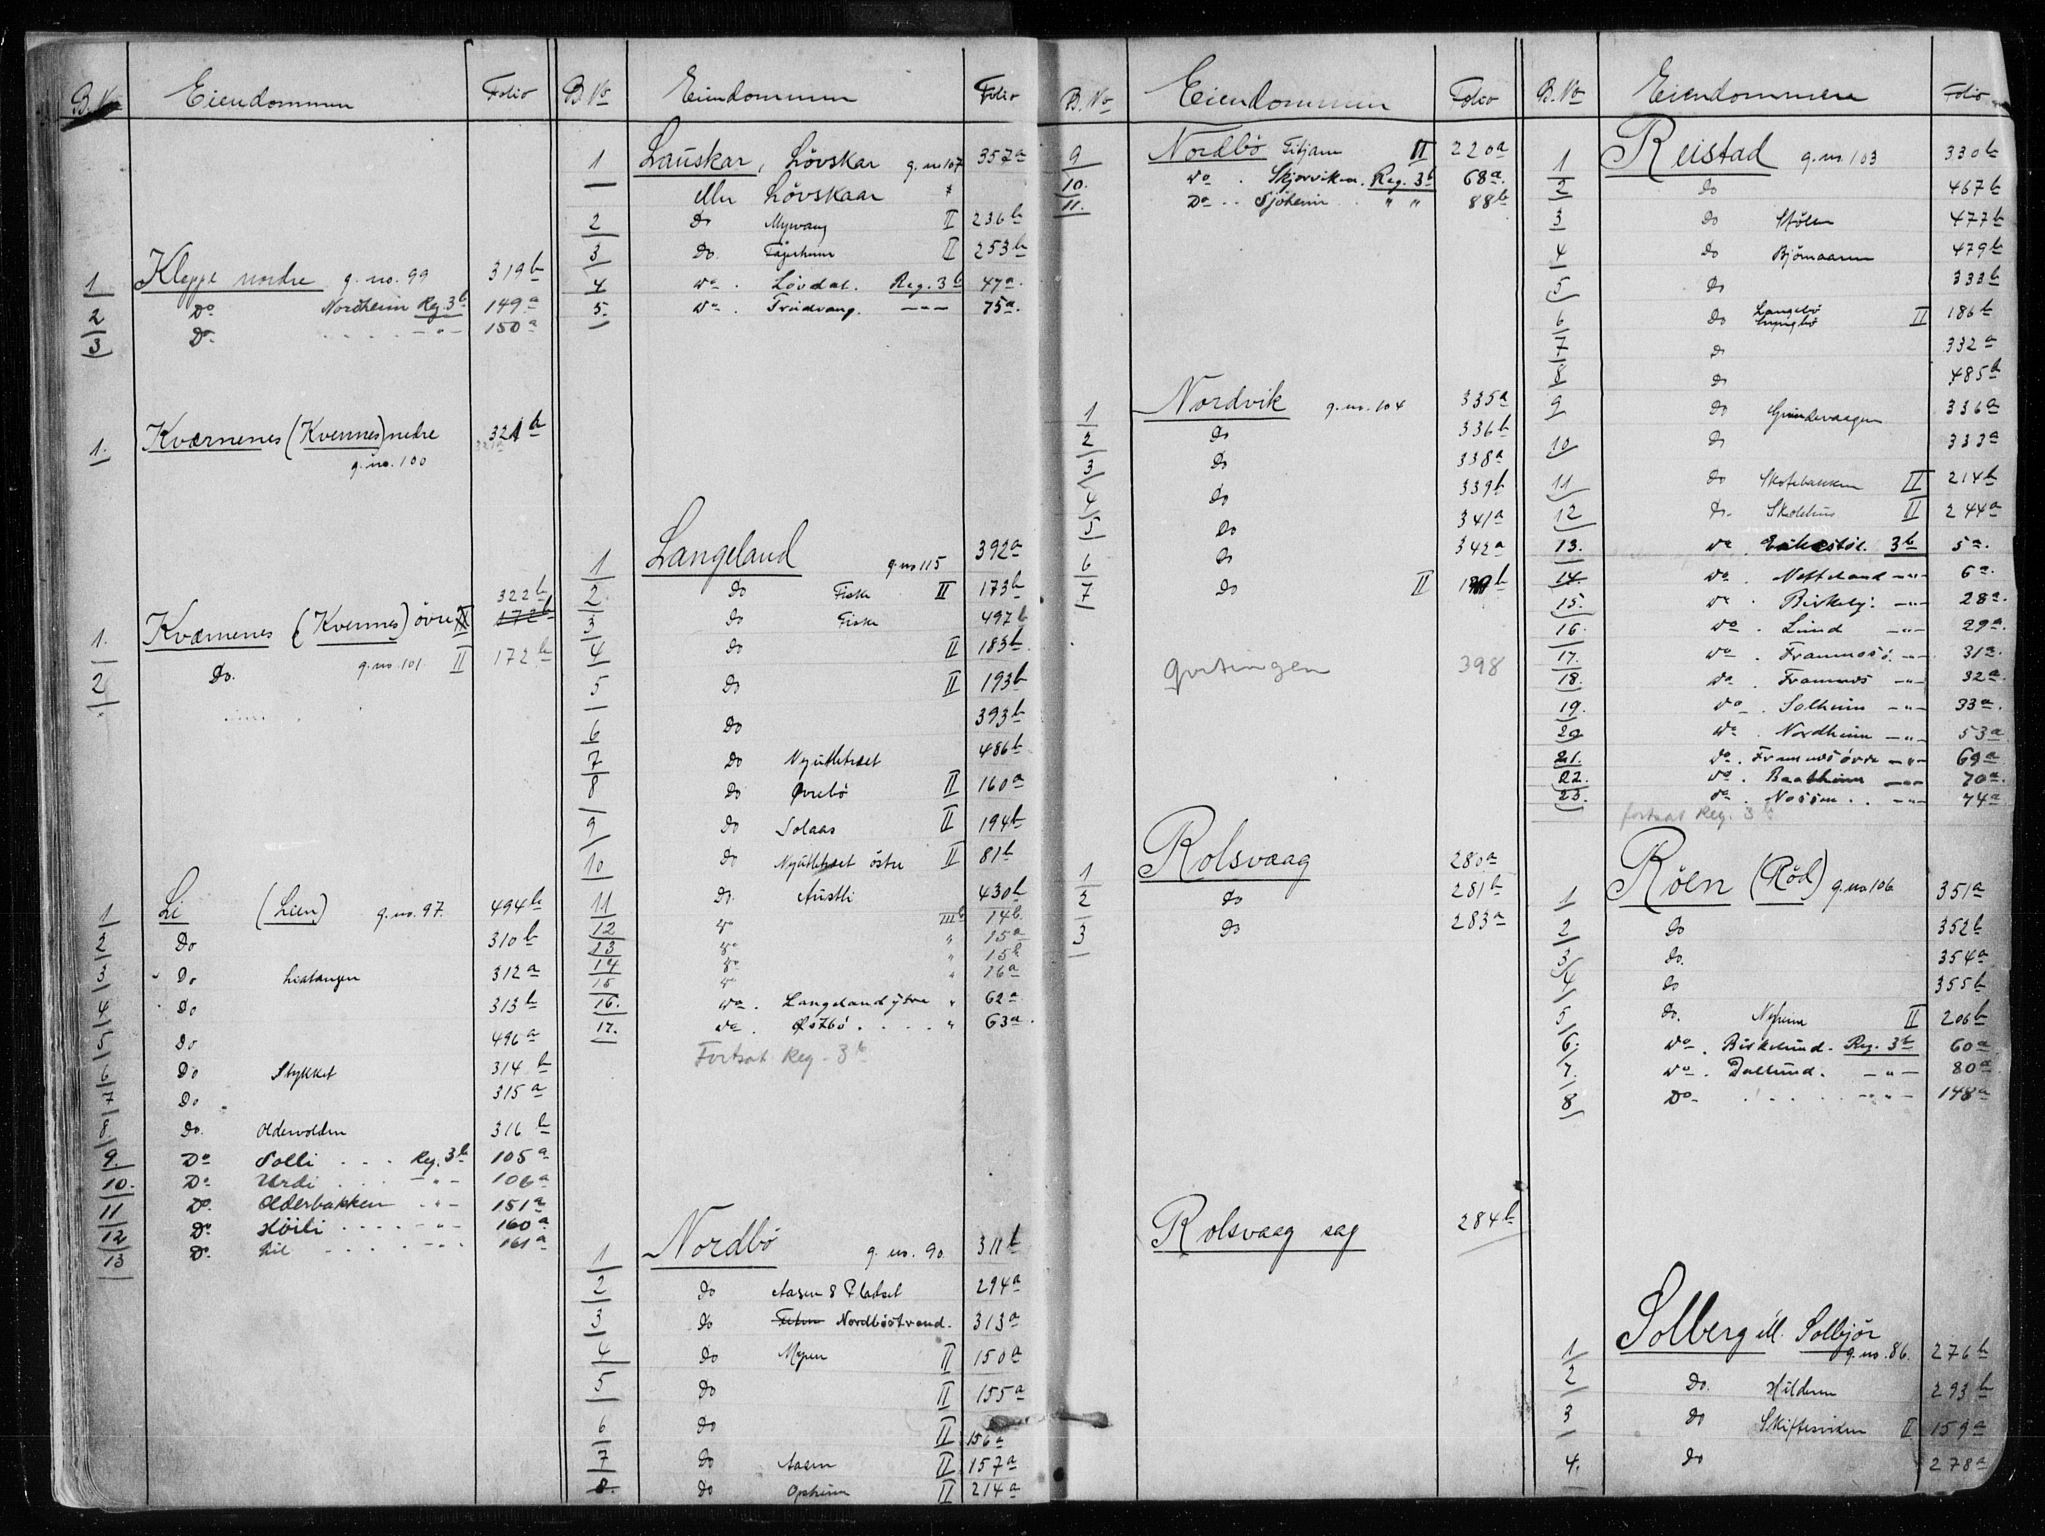 B. No Eiendommen Folio
1 Kleppe nordre g. no. 99 319b
2 Do Nordheim Reg. 3b 149a
3 Do - " - 150a
1. Kværnenes (Kvennes) nedre 321a
g. no. 100
322b
1. Kværnenes (Kvennes) övre II 172b
2 Do. g. no. 101 II 172b
1 Li (Lien) g. no. 97. 494b
2 Do 310b
3 Do Listangen 312a
4 Do 313b
5 Do 496a
6 Do Stykket 314b
7 Do 315a
8 Do. Oldervolden 316b
9. Do Solli . . . Reg. 3b 105a
10. Do Urdi . . . - " - 106a
11 Do Olderbakken - " - 151a
12 Do Höili . . . . - " - 160a
13 Do Lil . . . . - " - 161a
B No Eiendommen Folio
1 Lauskar, Lövskar g. no 107 357a
eller Lövskaar
2 Do Myrvang II 236b
3 Do. Fagerheim II 253b
4 Do . Lövdal. Reg. 3b 47a
5. Do . Fridvang. - " - 75a.
1 Langeland g. no 115 392a
2 Do Fiske II 173b
3 Do Fiske 497b
4 Do II 183b
5 Do II 193b
6 Do 393b
7 Do Nyutletræet 486b
8 Do Øvrebö II 160a
9 Do Solaas II 194b
10 Do Nyutletræet östre II 81b
11 Do. Austli 430b
12 Do IIIb 14b
13 Do " 15a
14 Do " 15b
15 Do " 16a
16. Do . Langeland ytre " 62a
17. Do . Østbö . . . . " 63a.
Fortsat Reg. 3b
1 Nordbö g. no. 90. 311b
2 Do Aasen & Pladset 294a
3 Do Nordböstrand. 313a
4 Do Myren II 150a
5 Do II 155a
6 Do II 156a
7 Do Aasen II 157a
8. Do Opheim II 214a
B. No Eiendommen Folio
9 Nordbö Fitjarn II 220a
10. Do . Skjorviken. Reg. 3b 68a
11. Do . . Sjöheim " " 88b
1 Nordvik g. no. 104 335a
2 Do 336b
3 Do 338a
4 Do 339b
5 Do 341a
6 Do 342a
7 Do II
398
1 Rolsvaag 280a
2 Do 281b
3 Do 283a
Rolsvaag sag 284b
B. No Eiendommene Folio
1 Reistad g. no. 103 330b
2 Do 467b
3 Do Stölen 477b
4 Do Björnaaren 479b
5 Do 333b
6 Do Langebö Lyngbö II 186b
7 Do 332a
8 Do 485b
9 Do Grindevaagen 336a
10 Do 333a
11 Do Skotebakken II 214b
12 Do. Skolehus II 244a
13. Do . Eikestöl. 3b 5a.
14. Do . Netteland - " - 6a.
15. Do . Birkely. - " - 28a.
16. Do . Lund - " - 29a.
17. Do . Framnesö. - " - 31a.
18. Do . Framnes - " - 32a.
19. Do . Solheim - " - 33a.
20 Do . Nordheim - " - 53a
21. Do . Framnes övre - " - 69a
22. Do . Baatheim - " - 70a.
23. Do . Nossen . . - " - 74a
fortsat Reg. 3b
1 Röen (Röd) g. no 106 351a
2 Do 352b
3 Do. 354a
4 Do 355b
5 Do. Nyheim II 206b
6. Do . Birkelund. Reg. 3b 60a
7. Do . Dallund. - " - 80a
8 Do - " - 148a
1 Solberg ell. Solbjör
g. no. 86. 276b
2 Do. Hilderen 293b
3 Do Skiftesviken II 159a
4. Do 278a